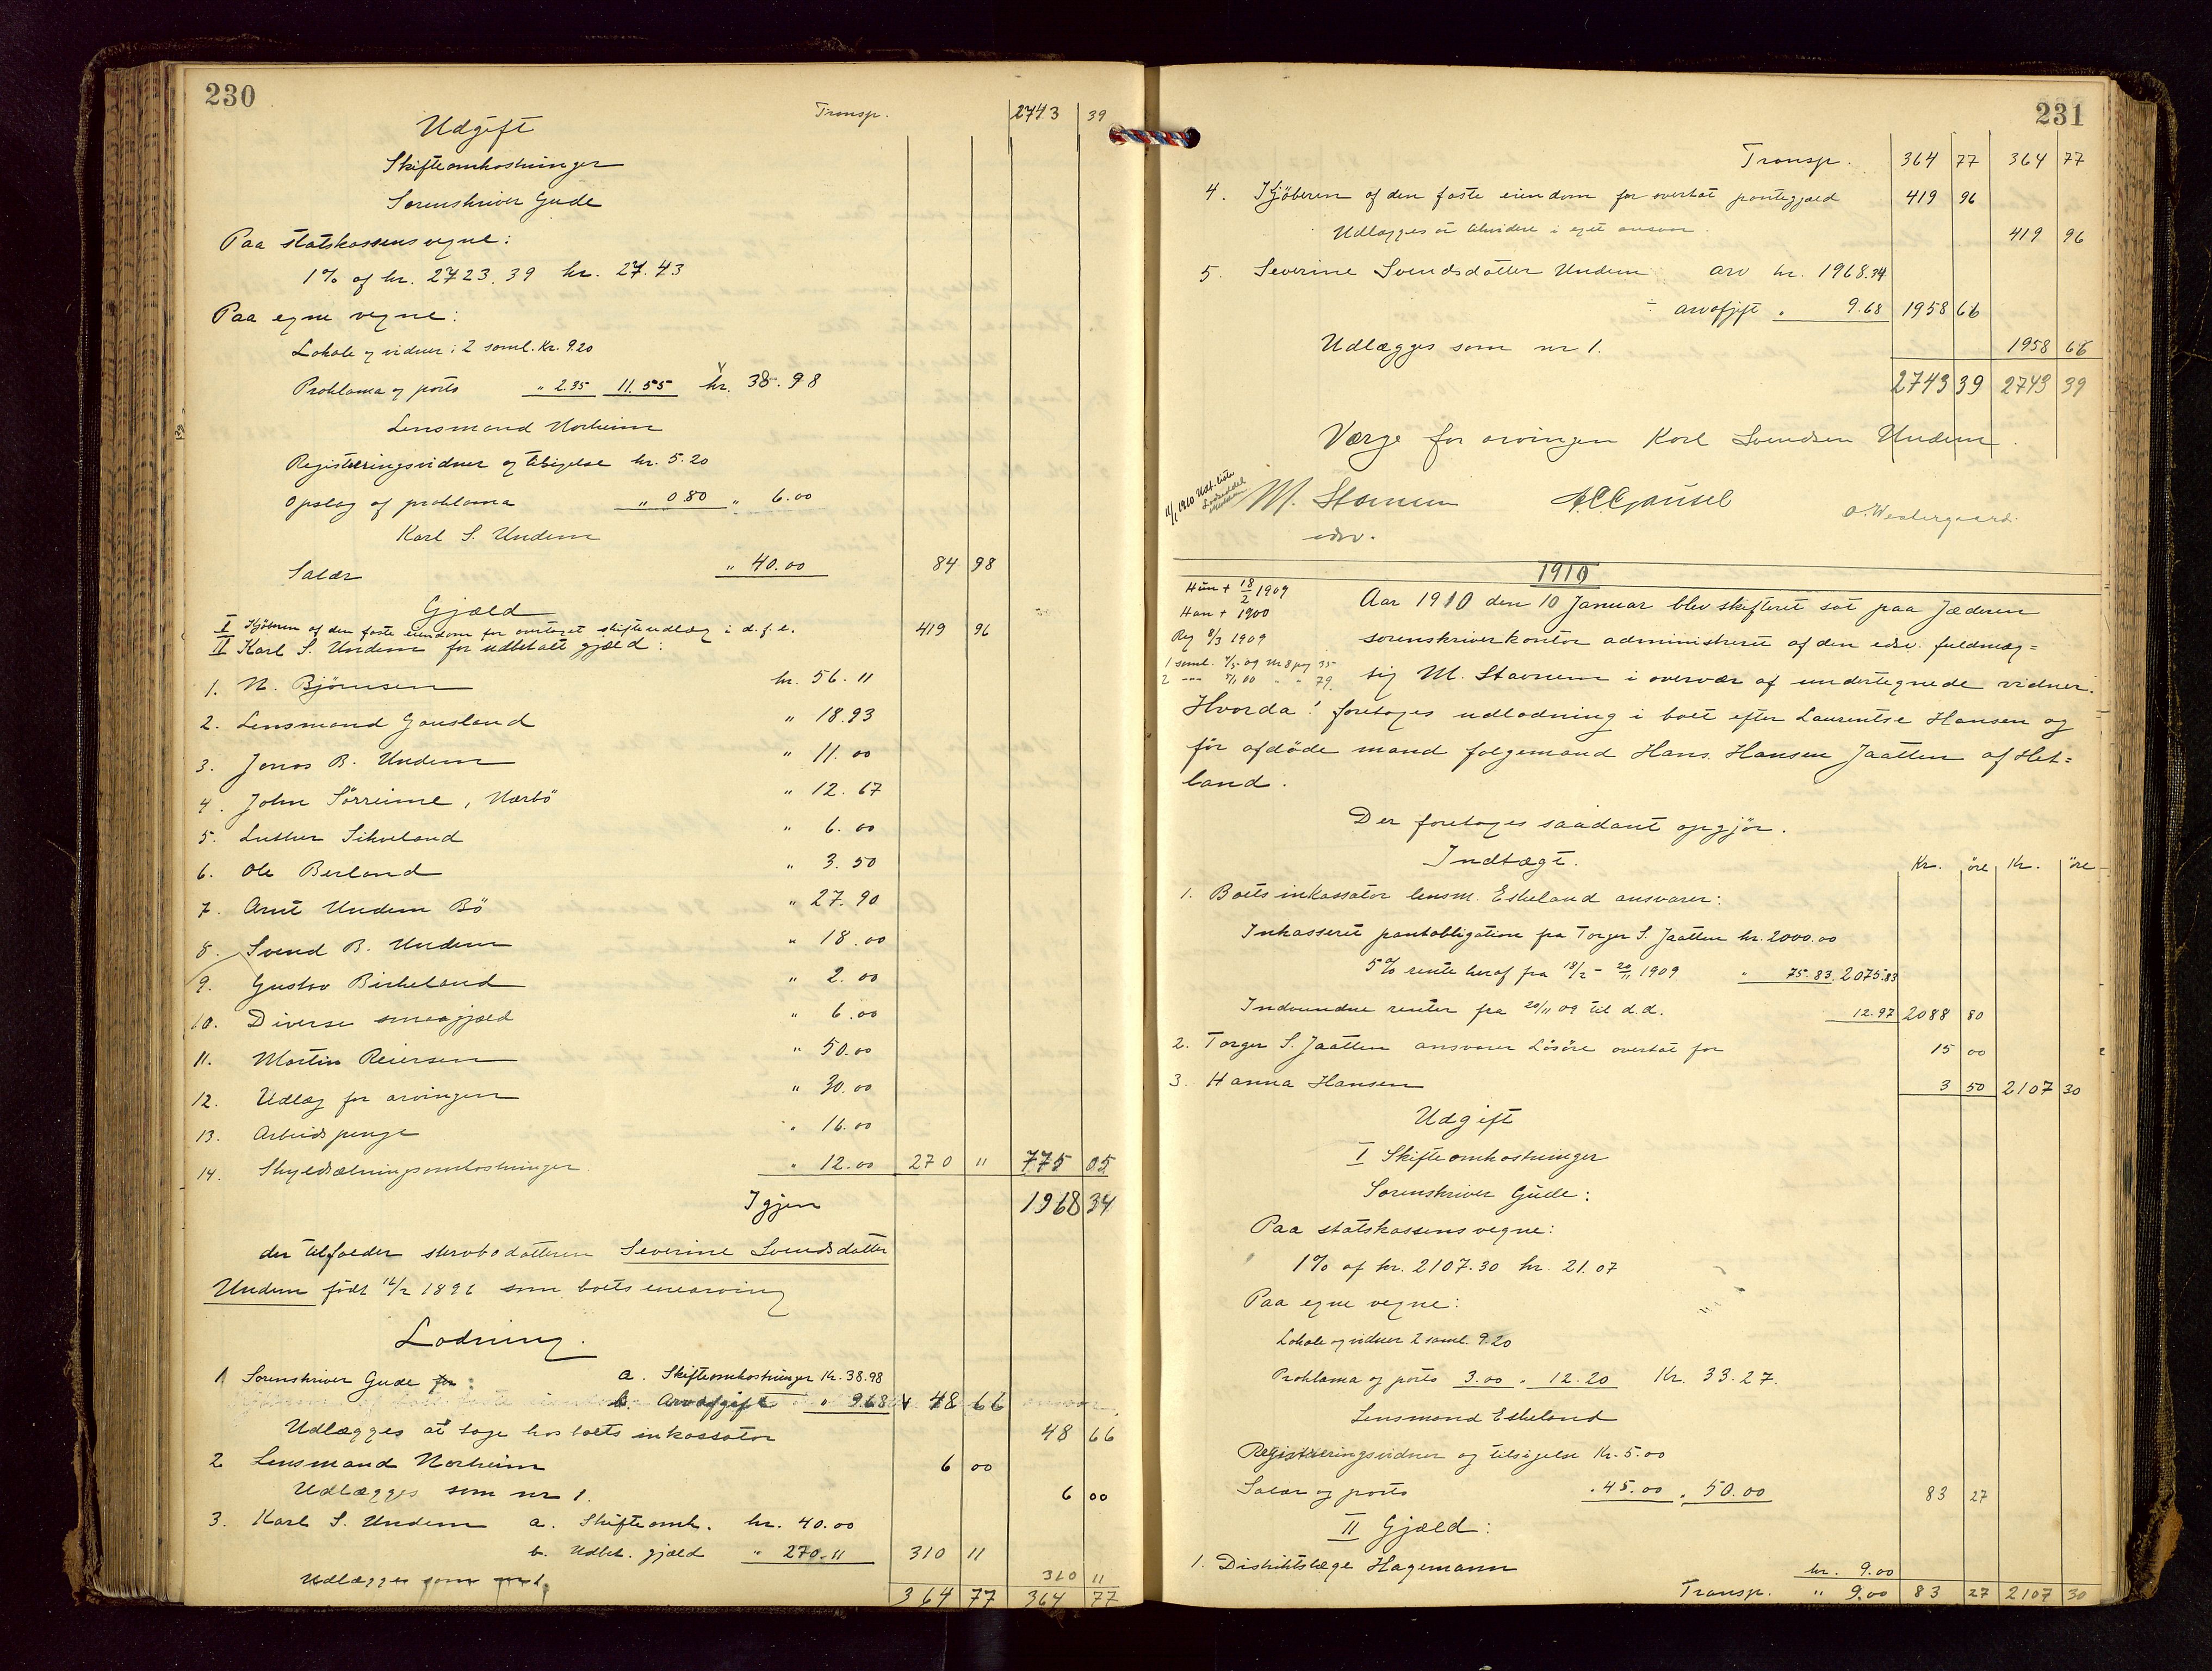 230
Transp. 2743 39
Udgift
Skifteomkostninger
Sorenskriver Gude
Paa statskassens vegne:
1% af kr. 2723.39 kr. 27.43
Paa egne vegne:
Lokale og vidner i 2 saml. Kr. 9.20
Proklama og porto " 2.35 11.55 kr. 38.98
Lensmand Norheim
Registreringsvidner og tilsigelse kr. 5.20
Opslag af proklama " 0.80 " 6.00
Karl S. Undem
Salær " 40.00 84 98
Gjæld
I Kjøberen af den faste eiendom for overtaget skifteudlæg i d. f. e. 419 96
II Karl S. Undem for udbetalt gjæld:
1. N. Bjørnsen kr. 56.11
2. Lensmand Gausland " 18.93
3. Jonas B. Undem " 11.00
4. John Sörreime, Nærbö " 12.67
5. Luther Sikveland " 6.00
6. Ole Berland " 3.50
7. Arnt Undem Bö " 27.90
8. Svend B. Undem " 18.00
9. Gustav Birkeland " 2.00
10. Diverse smaagjæld " 6.00
11. Martin Reiersen " 50.00
12. Udlæg for arvingen " 30.00
13. Arbeidspenge " 16.00
14. Skyldsætningsomkostninger " 12.00 270 11 775 05
Igjen 1968 34
der tilfalder sterbodatteren Severine Svendsdatter
Undem født 12/2 1896 som boets enearving
Lodning.
1 Sorenskriver Gude for: a. Skifteomkostninger Kr. 38.98
b. Arvafgift " 9.68 48 66
Udlægges at tage hos boets inkassator 48 66
2 Lensmand Norheim 6 00
Udlægges som nr 1. 6 00
3. Karl S. Undem a. Skifteomk. kr. 40.00
b. Udbet. gjæld " 270.11 310 11
Udlægges som nr 1. 310 11
364 77 364 77
231
Transp. 364 77 364 77
4. Kjöberen af den faste eiendom for overtat pantegjæld 419 96
Udlægges i eget ansvar. 419 96
5. Severine Svendsdatter Undem arv kr. 1968.34
÷ arvafgift " 9.68 1958 66
Udlægges som nr 1. 1958 66
2743 39 2743 39
Værge for arvingen Karl Svendsen Undem.
11/1 1910 Udt. liste
M. Stavnem
edsv.
O. Westergaard.
1910
Hun + 18/2 1909
Han + 1900
Reg 8/3 1909
Aar 1910 den 10 Januar blev skifteret sat paa Jæderen
sorenskriverkontor administreret af den edsv. fuldmæg=
tig M. Stavnem i overvær af undertegnede vidner.
Hvorda! foretages udlodning i boet efter Laurentse Hansen og
før afdöde mand følgemand Hans Hansen Jaatten af Het=
land.
Der foretages saadant opgjör.
Indtægt. Kr. öre Kr. öre
1. Boets inkassator lensm. Eskeland ansvarer:
Inkasseret pantobligation fra Torger S. Jaatten kr. 2000.00
5% rente heraf fra 18/2 - 20/11 1909 " 75.83 2075.83
Indvundne renter fra 20/11 09 til d.d. 12.97 2088 80
2. Torger S. Jaatten ansvarer Lösöre overtat for 15 00
3. Hanna Hansen 3 50 2107 30
Udgift
I Skifteomkostninger
Sorenskriver Gude:
Paa statskassens vegne:
1% af kr. 2107.30 kr. 21.07
Paa egne vegne:
Lokale og vidner 2 saml. 9.20
Proklama og porto 3.00 " 12.20 Kr. 33.27.
Lensmand Eskeland
Registreringsvidner og tilsigelse Kr. 5.00
Salær og porto " 45.00 " 50.00 83 27
II Gjæld:
1. Distriktslæge Hagemann kr. 9.00
Transp. " 9.00 83 27 2107 30